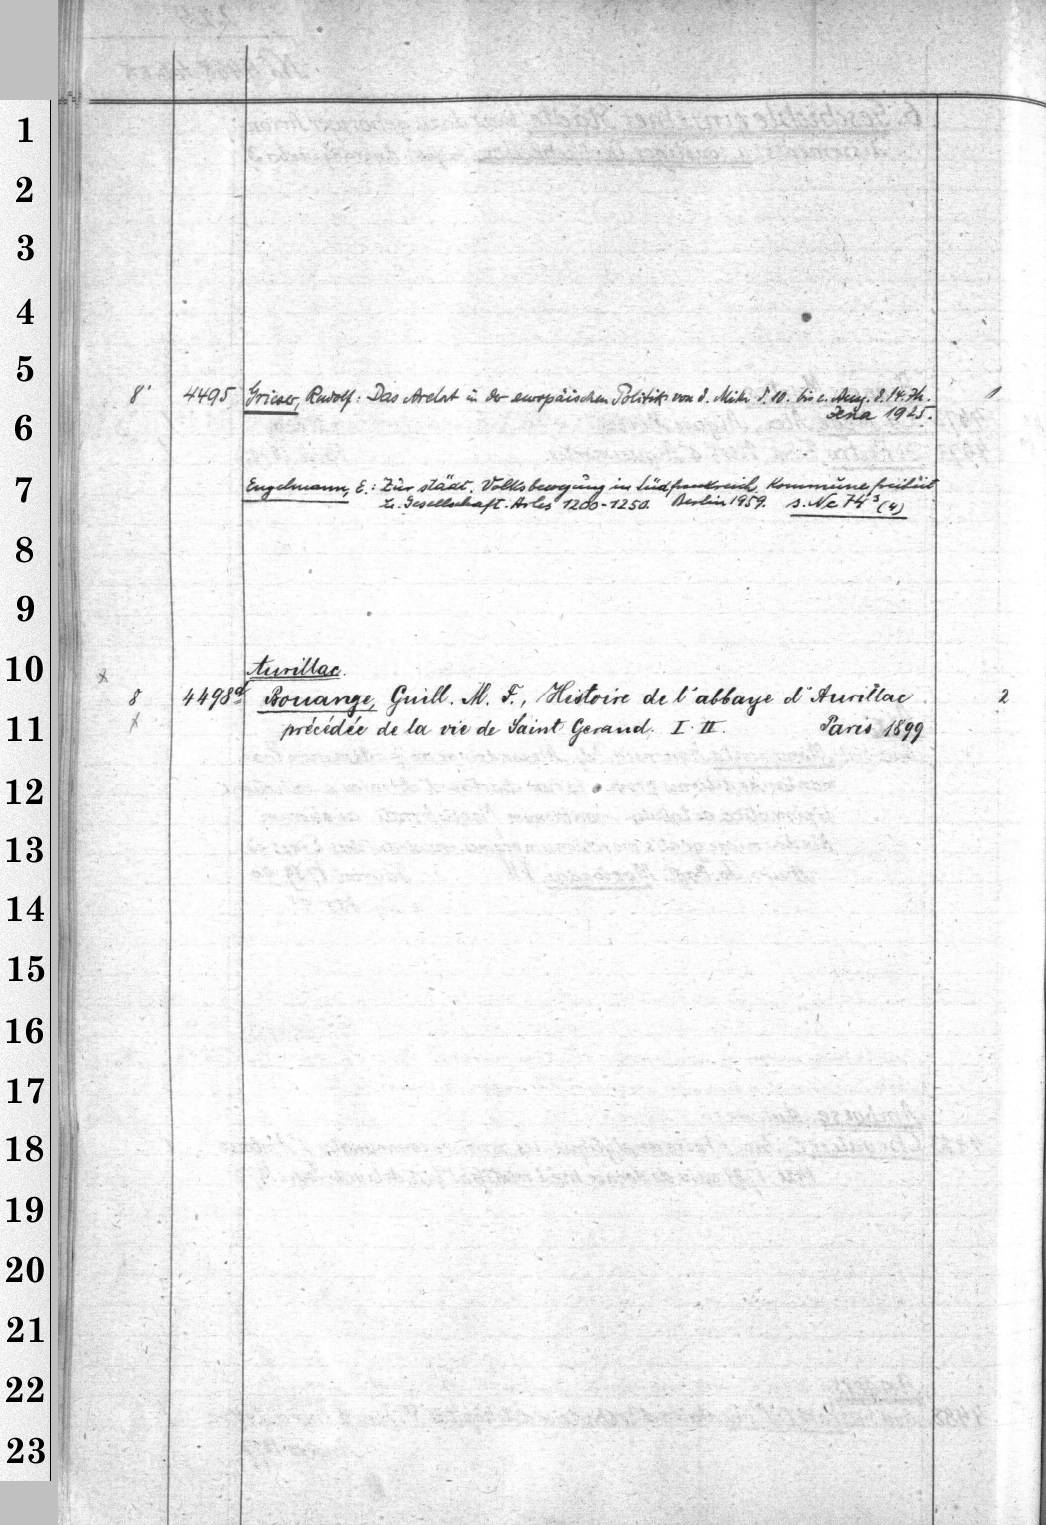 1
2
3
4
5
8° 4495 Grieser, Rudolf: Das Arelat in der europäischen Politik von d. Mitte d. 10. bis z. Ausg. d. 14. Jh. 1
6
Jena 1925.
7
Engelmann, E.: Zur städt. Volksbewegung in Südfrankreich, Kommunefreiheit
u. Gesellschaft. Arles 1200-1250. Berlin 1959. s. Nc 74³ (4)
8
9
10
Aurillac.
8 4498a Bouange, Guill. M. F., Histoire de l'abbaye d'Aurillac 2
11
précédée de la vie de Saint Gerand. I. II. Paris 1899
12
13
14
15
16
17
18
19
20
21
22
23